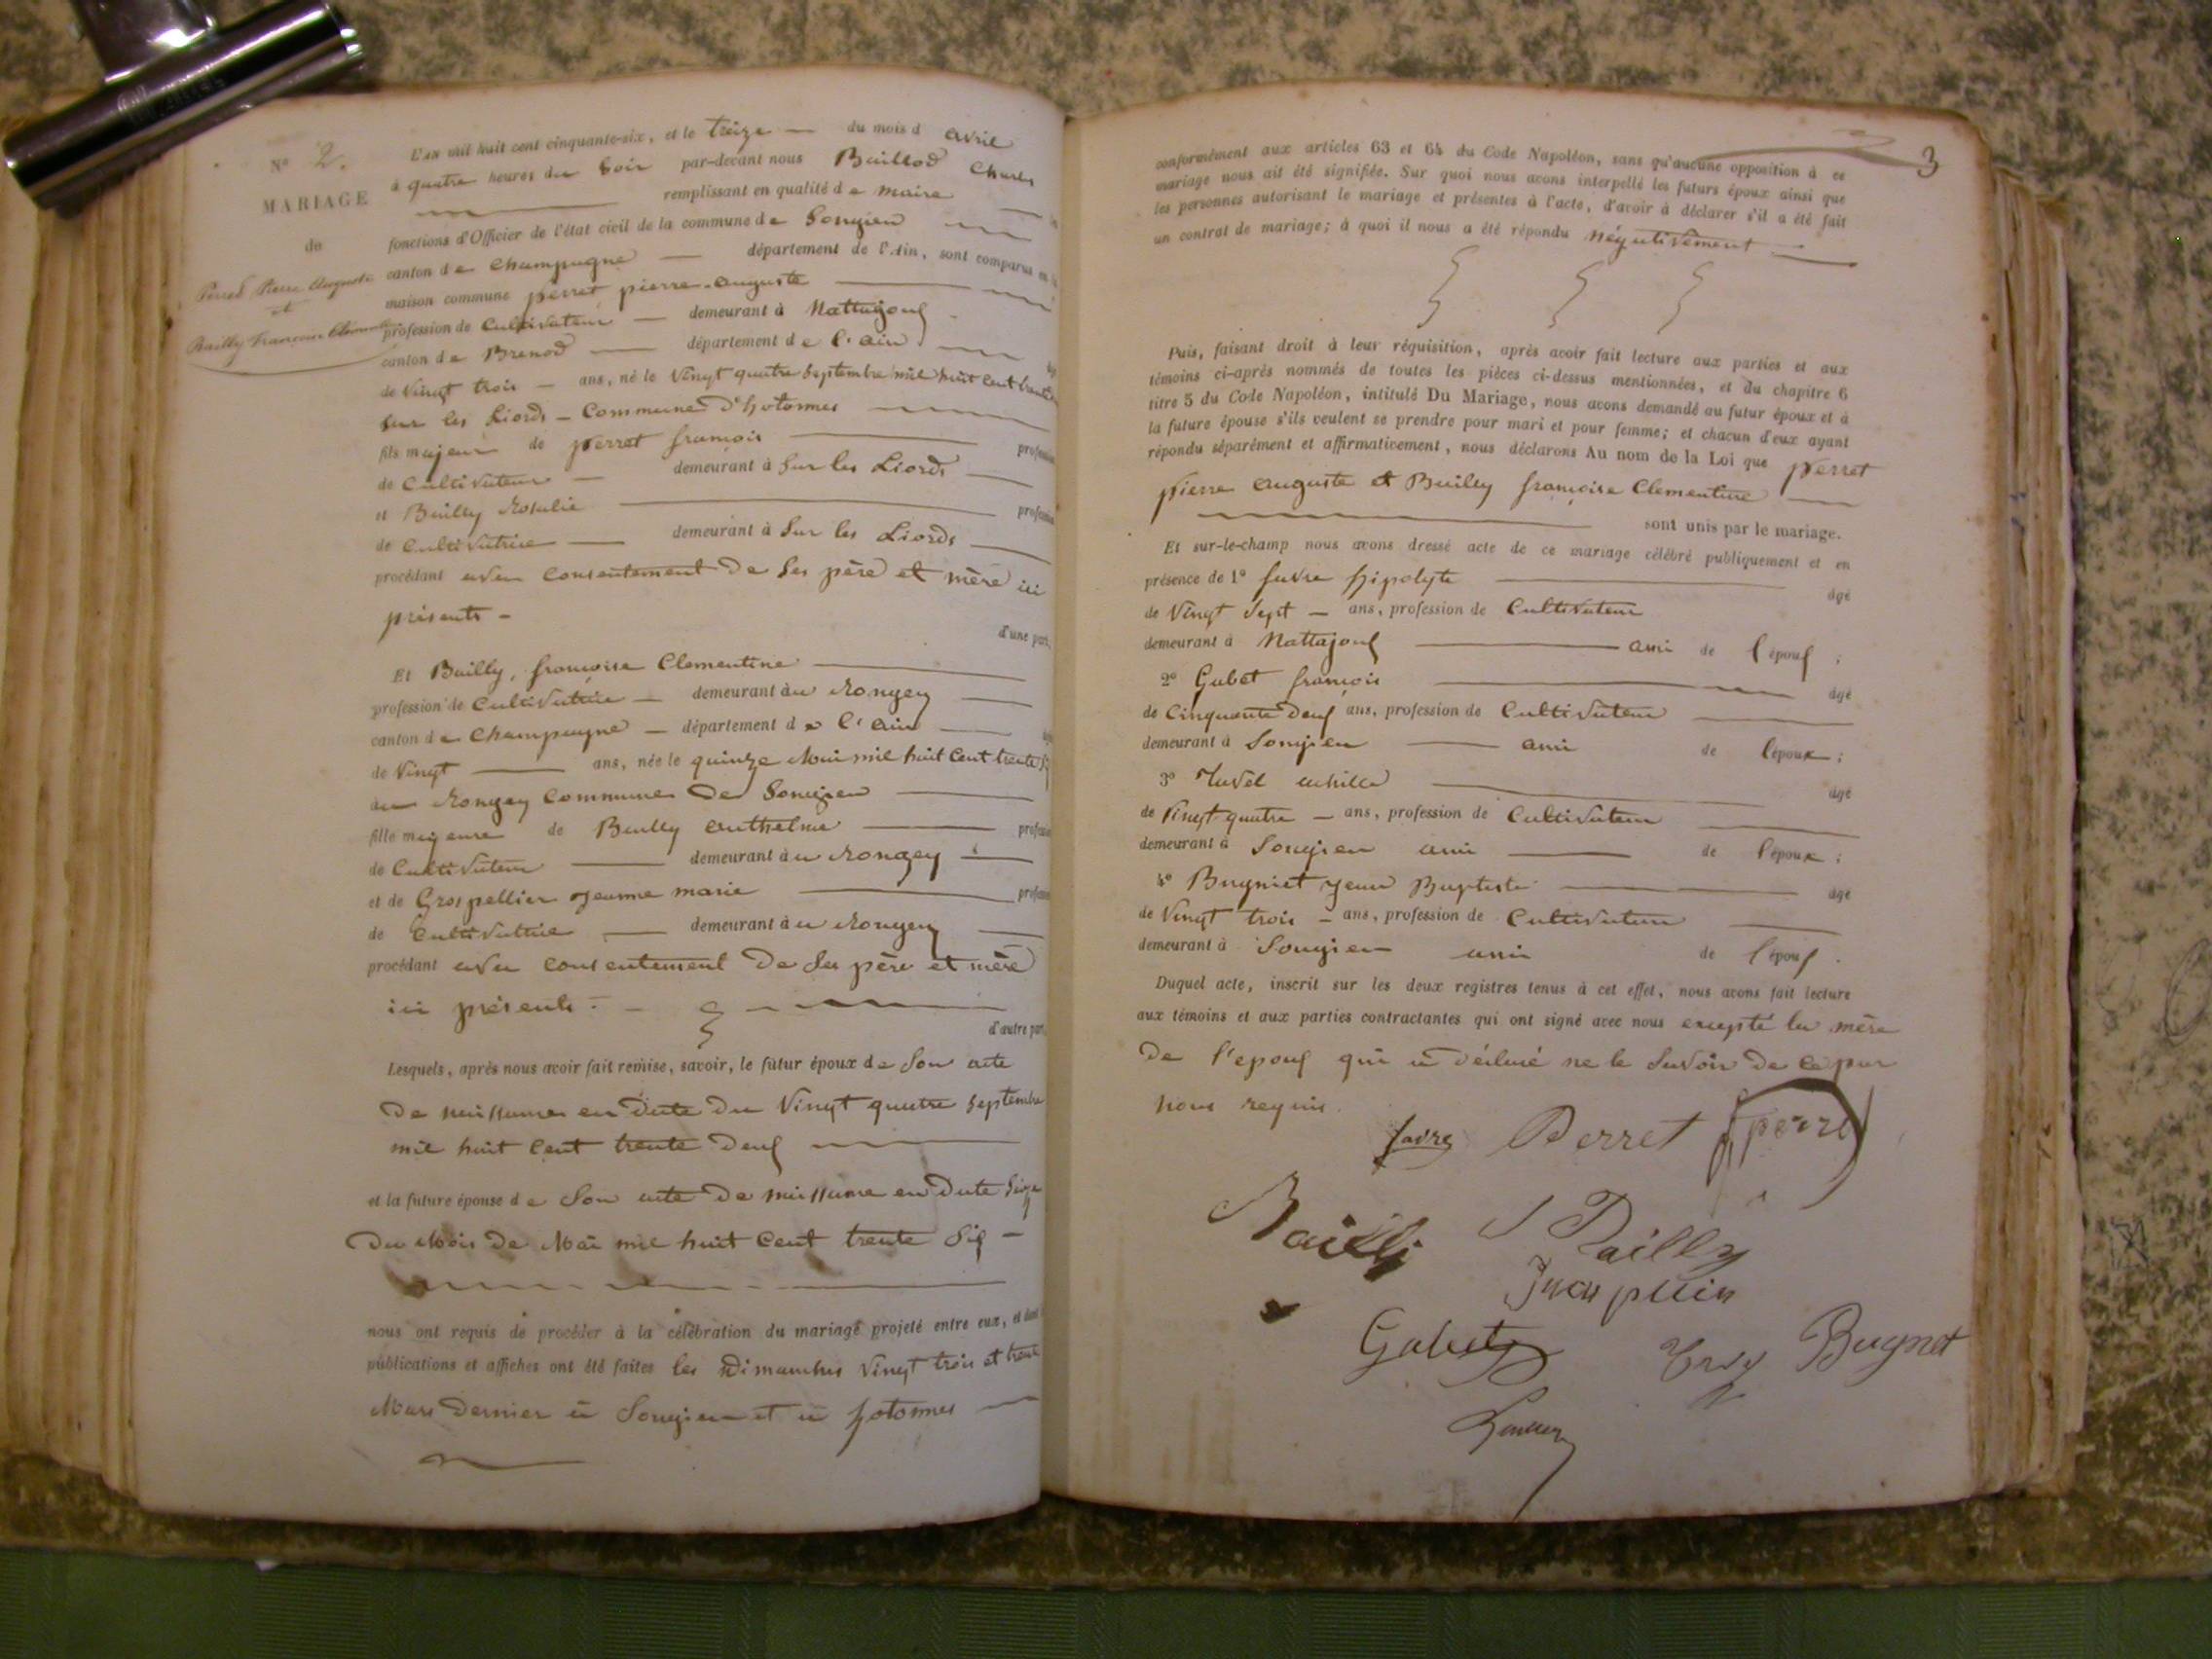 N° 2.
MARIAGE
de
Perret Pierre Auguste
et
Bailly Françoise Clémentine
L'AN mil huit cent cinquante-six, et le treize du mois d avril
à quatre heures du soir par-devant nous Baillod Charles
remplissant en qualité de maire
fonctions d'Officier de l'état civil de la commune de Songieu
canton de Champagne département de l'Ain, sont comparus en la
maison commune perret pierre-auguste
profession de Cultivateur demeurant à
canton de Brenod département de l'ain
de Vingt trois ans, né le Vingt quatre Septembre mil huit cent trente
Sur les Liords - Commune d'hotonnes
fils majeur de perret françois profession
de Cultivateur demeurant à Sur les Liords
et Bailly Rosalie profession
de Cultivatrice demeurant à Sur les Liords
procédant avec consentement de ses père et mère ici
présents -
d'une part,
Et Bailly, françoise Clementine
profession de Cultivatrice demeurant au Rongey
canton de Champagne département de l'ain
de Vingt ans, née le quinze Mai mil huit Cent trente
au Rongey Commune de Songieu
fille majeure de Bailly Anthelme profession
de Cultivateur demeurant au Rongey
et de Grospellier Jeanne marie profession
de Cultivatrice demeurant au Rongey
procédant avec consentement de Ses père et mère
ici présents -
d'autre part.
Lesquels, après nous avoir fait remise, savoir, le futur époux de Son acte
de naissance en date du Vingt quatre Septembre
mil huit Cent trente deux
et la future épouse de Son acte de naissance en date Seize
du Mois de Mai mil huit Cent trente Six -
nous ont requis de procéder à la célébration du mariage projeté entre eux, et dont
publications et affiches ont été faites les Dimanches Vingt trois et trente
Mars dernier à Songieu et à hotonnes
3
conformément aux articles 63 et 64 du Code Napoléon, sans qu'aucune opposition à ce
mariage nous ait été signifiée. Sur quoi nous avons interpellé les futurs époux ainsi que
les personnes autorisant le mariage et présentes à l'acte, d'avoir à déclarer s'il a été fait
un contrat de mariage; à quoi il nous a été répondu négativement
Puis, faisant droit à leur réquisition, après avoir fait lecture aux parties et aux
témoins ci-après nommés de toutes les pièces ci-dessus mentionnées, et du chapitre 6
titre 5 du Code Napoléon, intitulé Du Mariage, nous avons demandé au futur époux et à
la future épouse s'ils veulent se prendre pour mari et pour femme; et chacun d'eux ayant
répondu séparément et affirmativement, nous déclarons Au nom de la Loi que perret
pierre auguste et Bailly françoise Clementine
sont unis par le mariage.
Et sur-le-champ nous avons dressé acte de ce mariage célébré publiquement et en
présence de 1° favre hipolyte âgé
de Vingt Sept ans, profession de Cultivateur
demeurant à ami de l'époux ;
2° Gabet françois âgé
de Cinquante deux ans, profession de Cultivateur
demeurant à Songieu ami de l'époux ;
3° achille âgé
de Vingt quatre ans, profession de Cultivateur
demeurant à Songieu ami de l'époux ;
4° Bugniet Jean Baptiste âgé
de Vingt trois ans, profession de Cultivateur
demeurant à Songieu ami de l'époux .
Duquel acte, inscrit sur les deux registres tenus à cet effet, nous avons fait lecture
aux témoins et aux parties contractantes qui ont signé avec nous excepté la mère
de l'epoux qui a déclaré ne le Savoir de ce par
nous requis.
favre Perret perret
Bailli Bailly
Gabet Bugnet